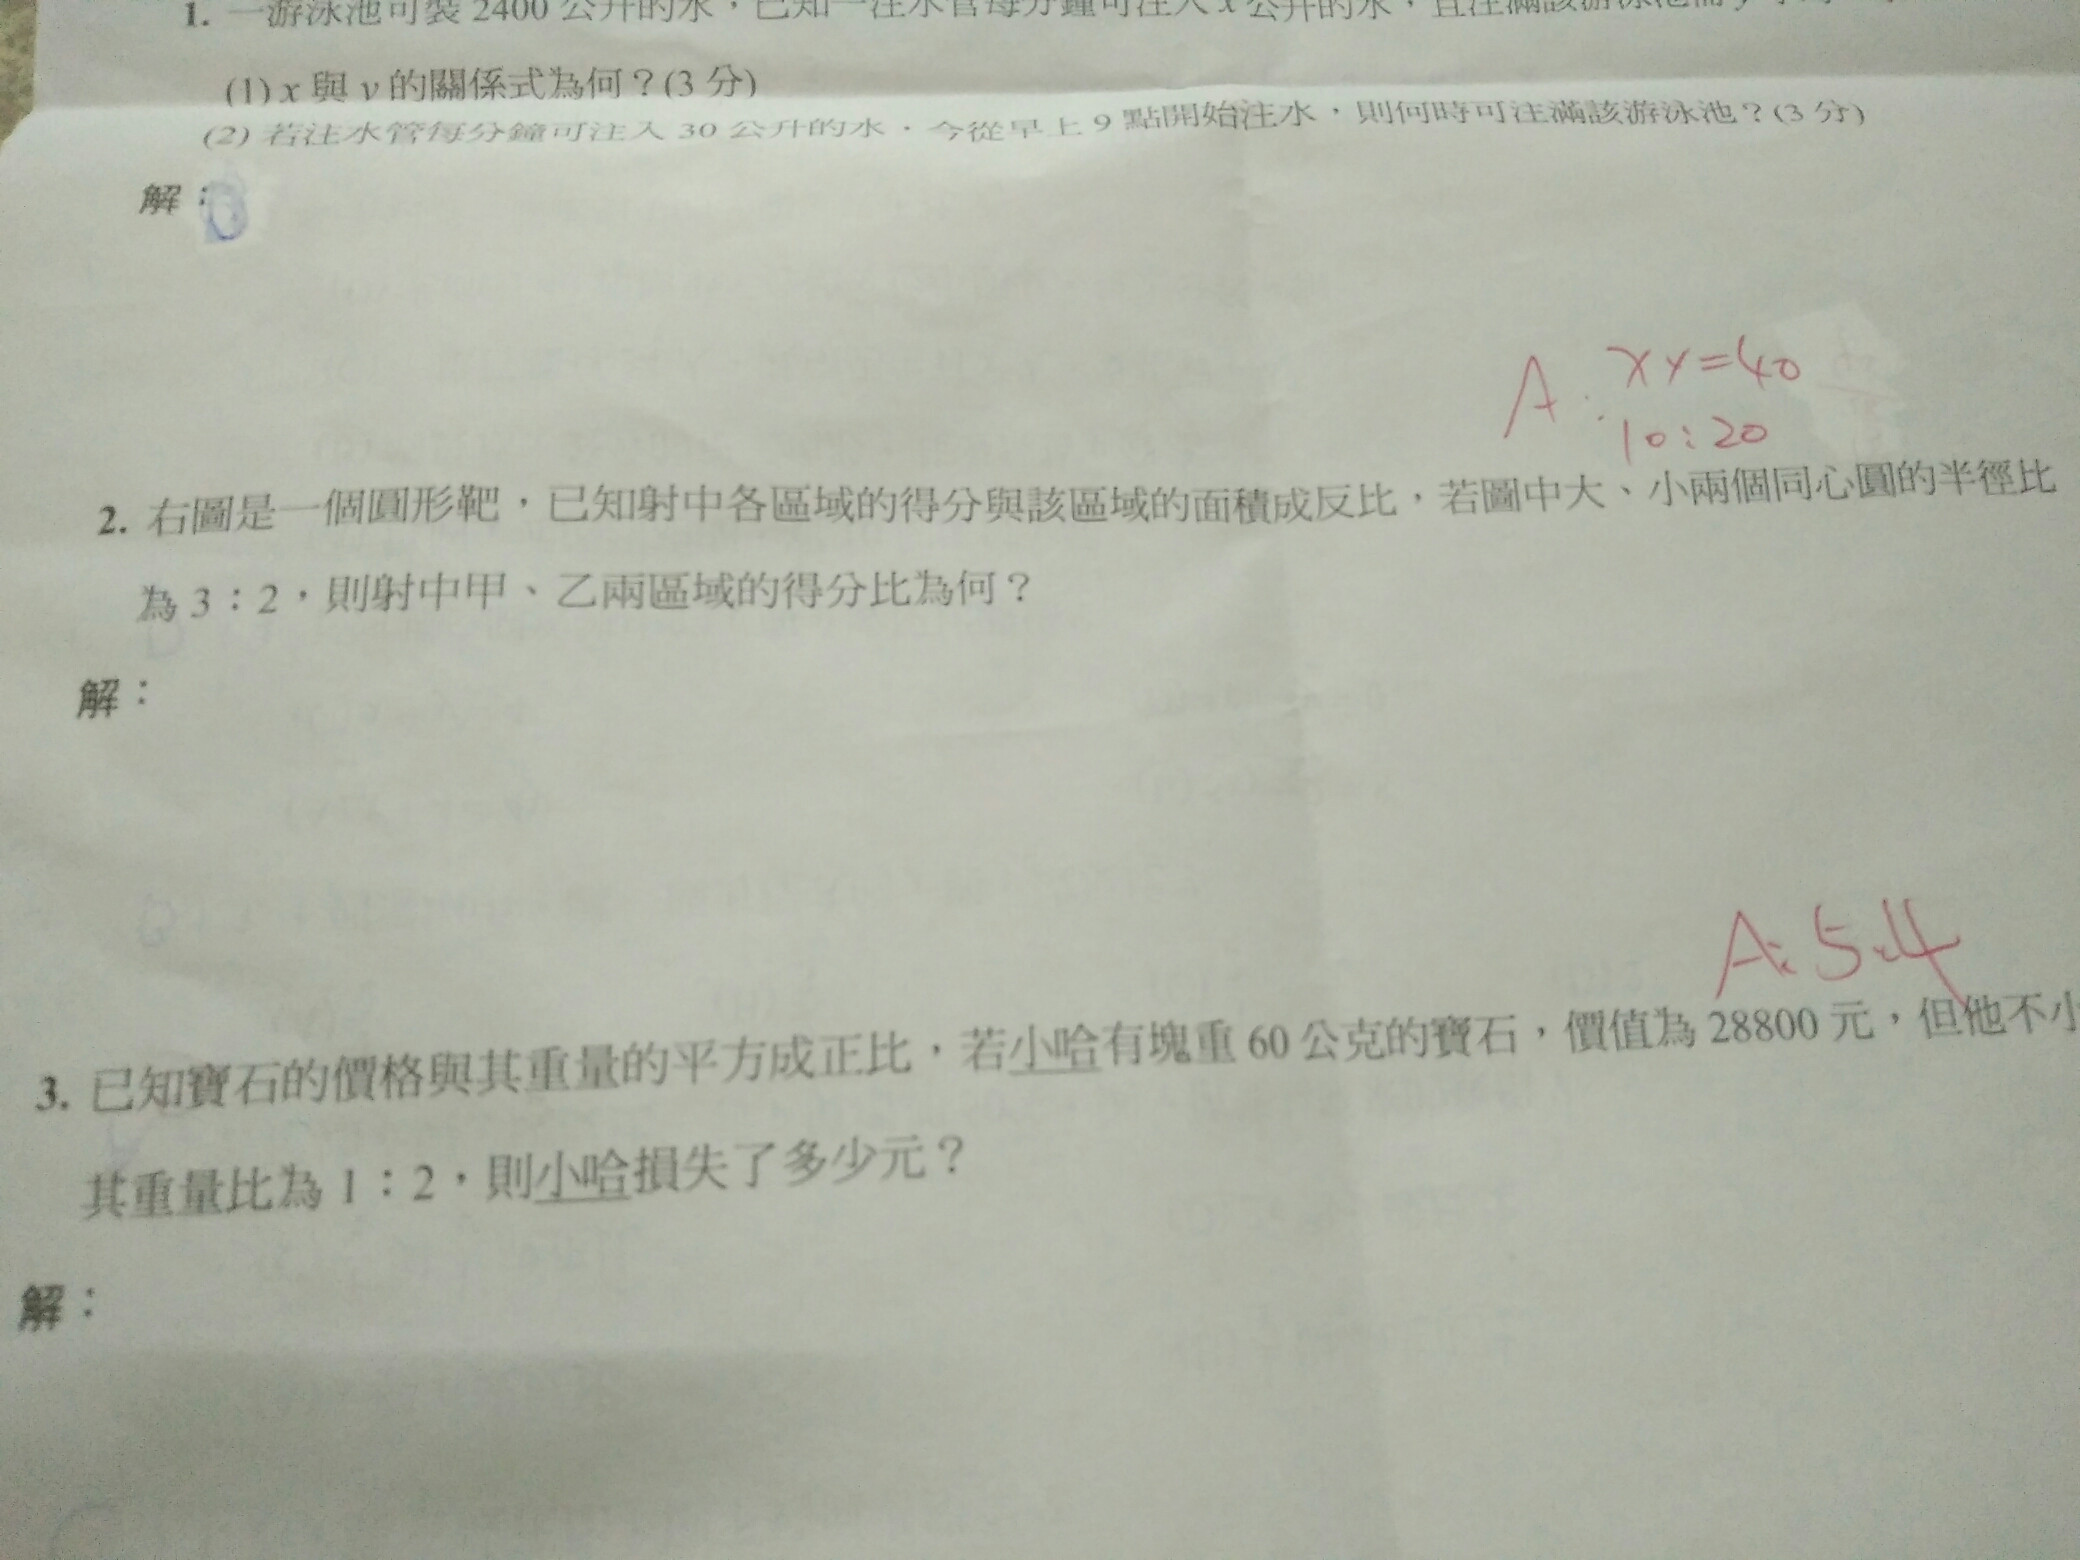 1. 一游泳池可裝 2400 公升的水，已知一注水管每分鐘可注入 x 公升的水，且注滿該游泳池需 y
(1) x 與 y 的關係式為何？(3 分)
(2) 若注水管每分鐘可注入 30 公升的水，今從早上 9 點開始注水，則何時可注滿該游泳池？(3 分)
解：
A: xy=40
10:20
2. 右圖是一個圓形靶，已知射中各區域的得分與該區域的面積成反比，若圖中大、小兩個同心圓的半徑比
為 3：2，則射中甲、乙兩區域的得分比為何？
解：
A: 5:4
3. 已知寶石的價格與其重量的平方成正比，若小哈有塊重 60 公克的寶石，價值為 28800 元，但他不小
其重量比為 1：2，則小哈損失了多少元？
解：